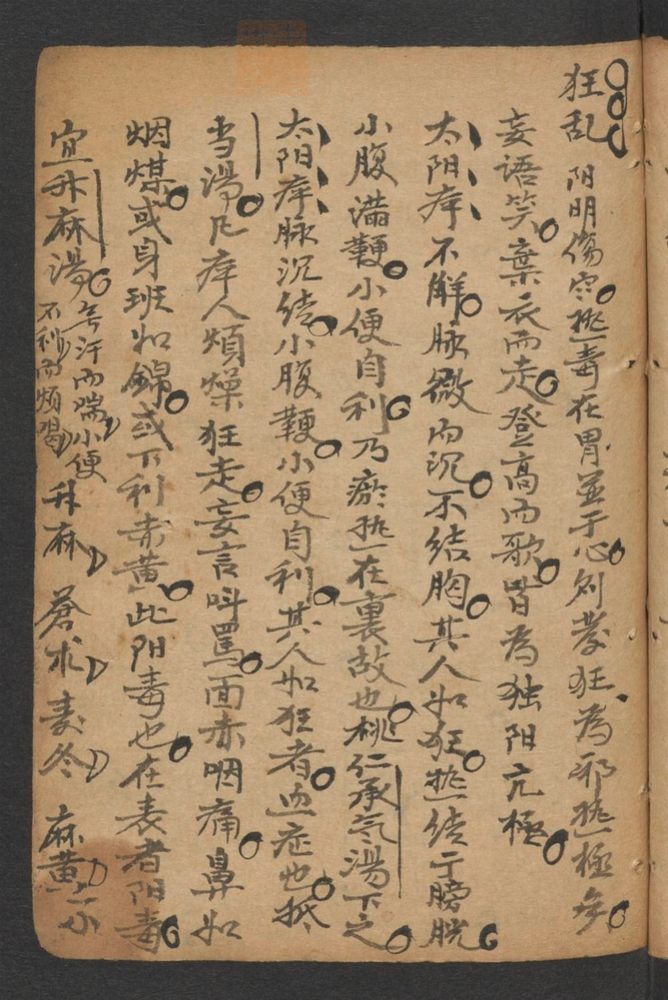 狂乱 阳明傷寒热毒在胃並于心則發狂為邪热極矣
妄语笑棄衣而走登高而歌皆為独阳亢極
太阳病不解脉微而沉不结胸其人如狂热结于膀胱
小腹满鞕小便自利乃瘀热在裏故也桃仁承气湯下之
太阳病脉沉结小腹鞕小便自利其人如狂者血症也抵
当湯凡病人煩燥狂走妄言叫罵面赤咽痛鼻如
烟煤或身班如錦或下利赤黄此阳毒也在表者阳毒
宜升麻湯 無汗而喘小便
不利而煩渴 升麻 蒼朮 麦冬 麻黄